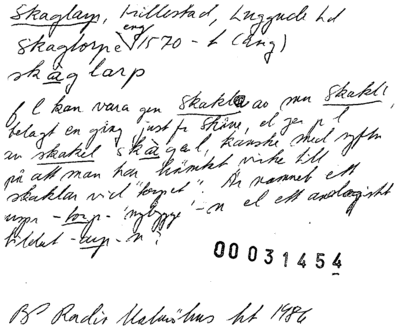 Skaglarp, Killestad, Luggude hd
Skagtorpe eng 1570 - t (Eng)
skaglarp
fl kan vara gen skakla av mn Skakli,
belagt en gång just fr Skåne, el gen pl
av skakel skagal, kanske med syftn
på att man har hämtat virke till
skaklar vid "torpet". Är namnet ett
urspr -torp- "nybygge"-n el ett analogiskt
bildat -arp-n?
00031454
BP Radio Malmöhus ht 1986